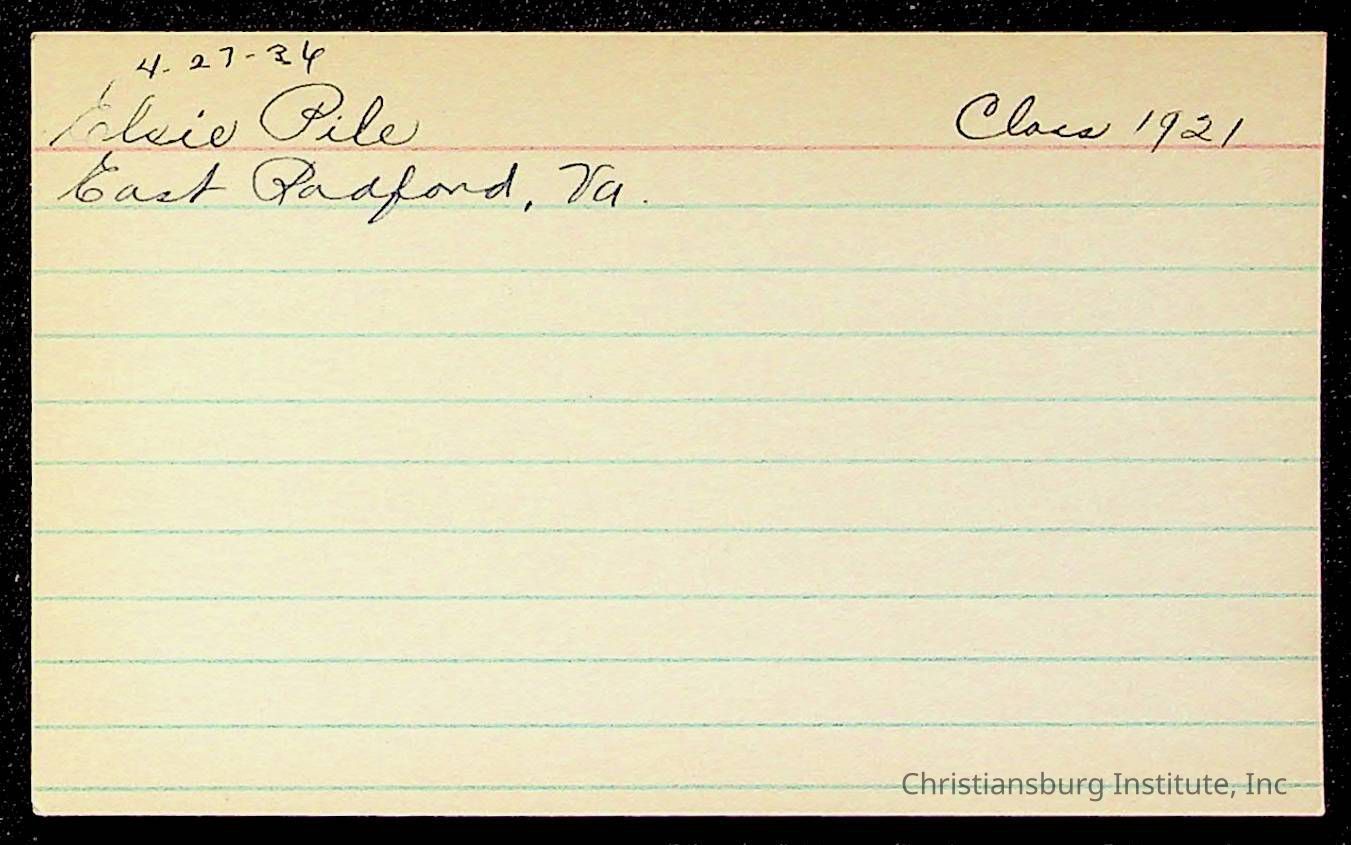 4-27-34
Elsie Pile Class 1921
East Radford, Va.
Christiansburg Institute, Inc